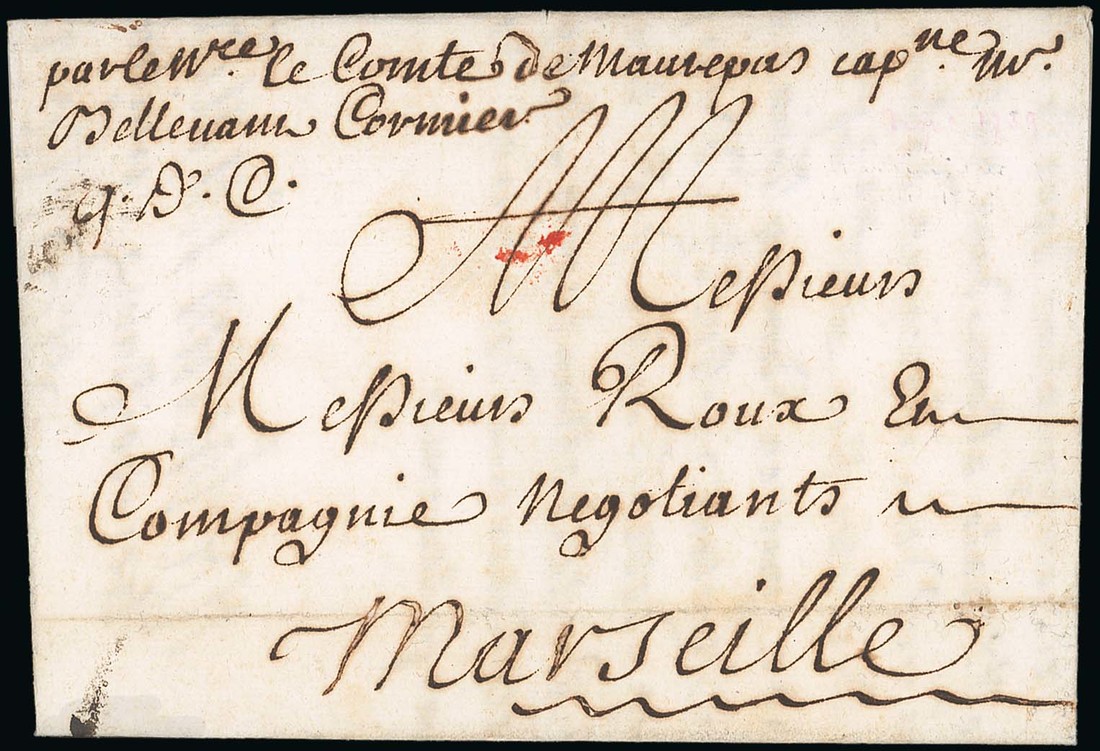 par le N.re le Comte de Maurepas cap.ne Mr.
Cormier
q. D. C.
Messieurs
Messieurs Roux En
Compagnie Negotiants
Marseille